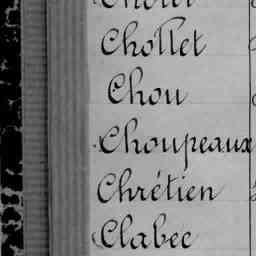 Chollet
Chou
Choupeaux
Chrétien
Clabec